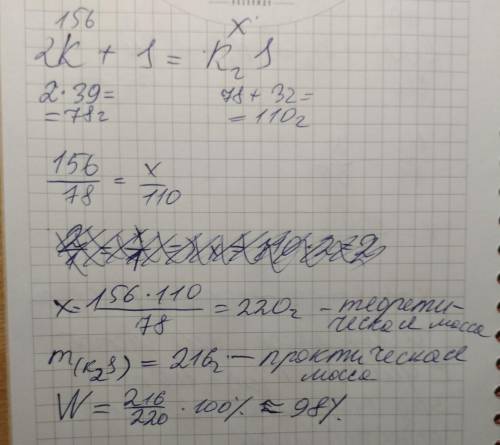 156 x
2K + S = K₂S
2·39= 78+32=
=78г =110г
156/78 = x/110
x = 156·110/78 = 220г - теорети-
ческая масса
m(K₂S) = 216г - практическая
масса
W = 216/220 · 100% ≈ 98%